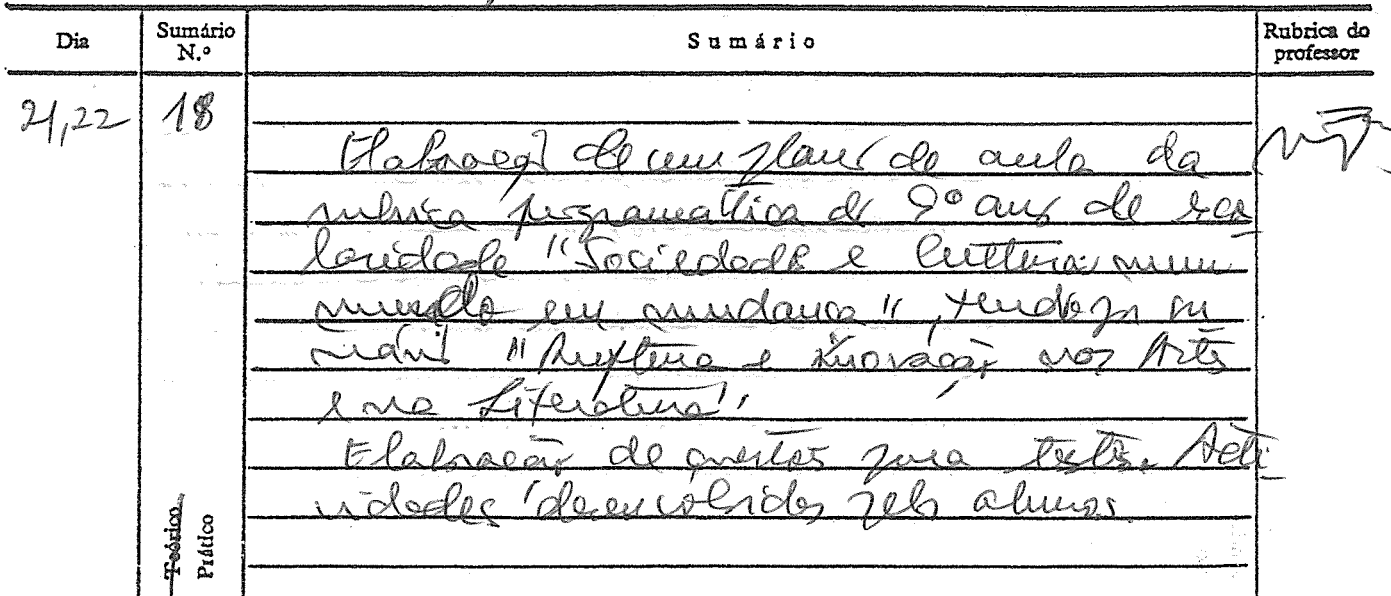 Dia
Sumário N.º
Sumário
Rubrica do professor
21,22
18
Elaboração de um plano de aula da
rubrica programática do 9º ano de esco
laridade "Sociedade e Cultura num
mundo em mudança", tendo por su
mário "Ruptura e inovação nas Artes
e na Literatura"
Elaboração de questões para teste. Acti
vidades desenvolvidas pelos alunos.
Teórico
Prático